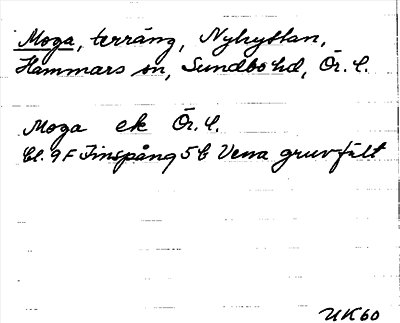 Moga, terräng, Nyhyttan,
Hammars sn, Sundbo hd, Ör. l.
Moga ek Ör. l.
bl. 9F Finspång 5 b Vena gruvfält
UK60